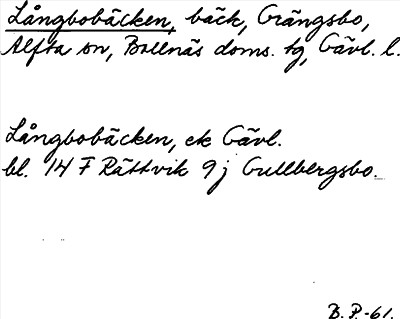 Långbobäcken, bäck, Grängsbo,
Alfta sn, Bollnäs doms. tg, Gävl. l.
Långbobäcken, ek Gävl.
bl. 14 F Rättvik 9 j Gullbergsbo.
B. P. -61.